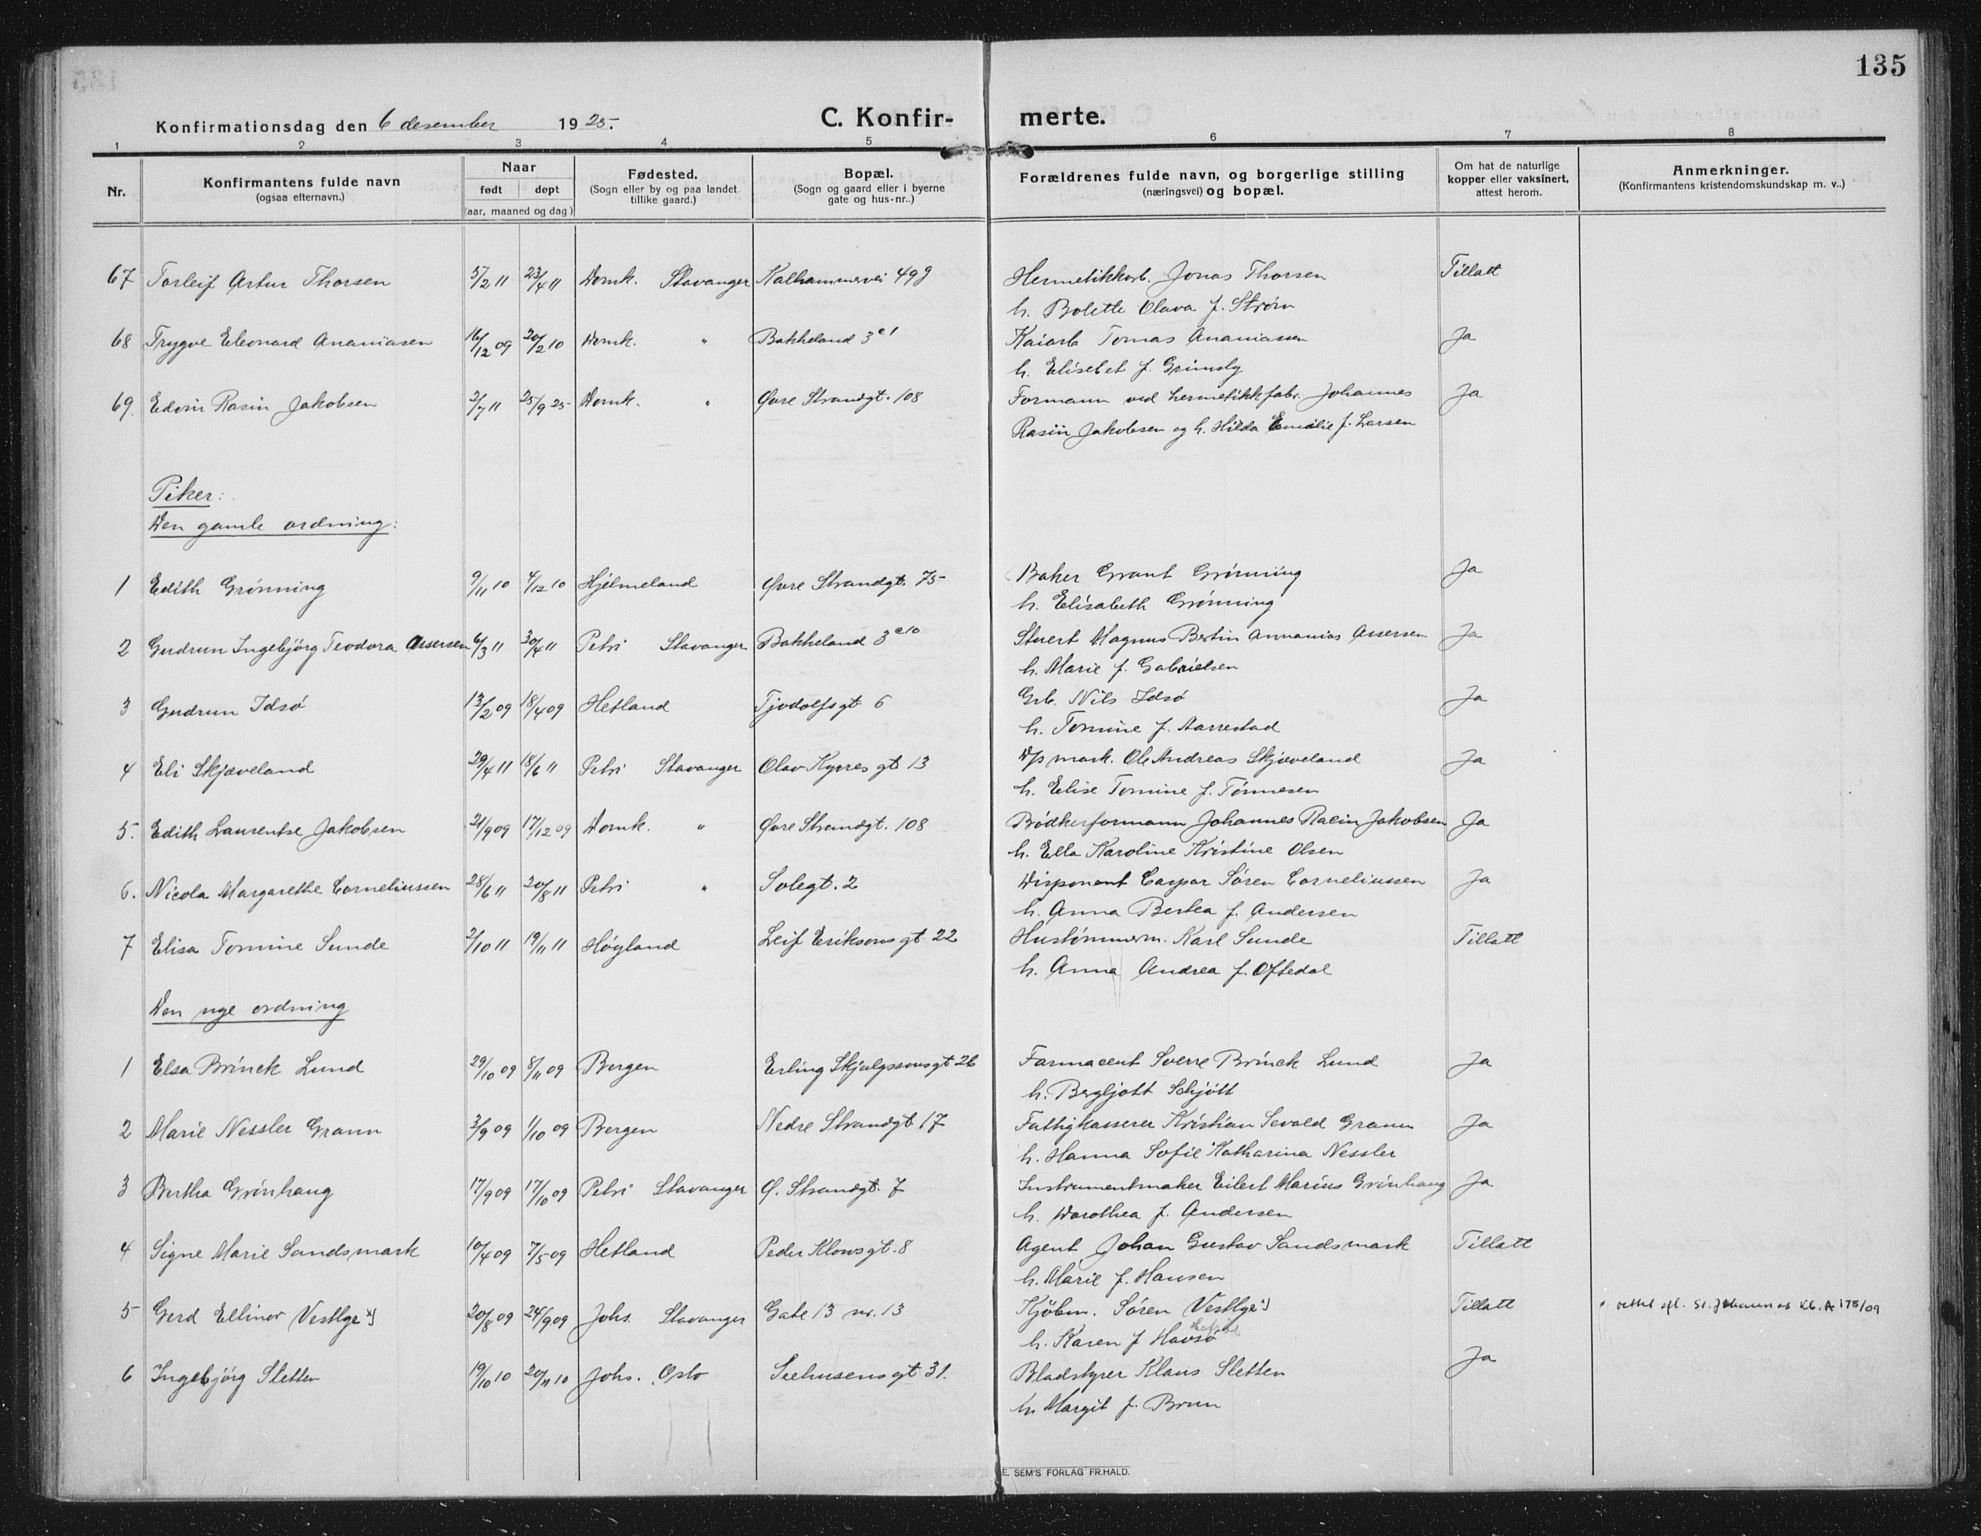 135
Konfirmationsdag den 6 desember 1925.
C. Konfir- merte.
1 2 3 4 5 6 7 8
Nr.
Konfirmantens fulde navn
(ogsaa efternavn.)
Naar
født dept
(aar, maaned og dag)
Fødested.
(Sogn eller by og paa landet
tillike gaard.)
Bopæl.
(Sogn og gaard eller i byerne
gate og hus-nr..)
Forældrenes fulde navn, og borgerlige stilling
(næringsvei) og bopæl.
Om hat de naturlige
kopper eller vaksinert,
attest herom.
Anmerkninger.
(Konfirmantens kristendomskundskap m. v..)
67 Torleif Artur Thorsen 5/2 11 23/4 11 Domk. Stavanger Kalhammervei 49g Hermetikkarb. Jonas Thorsen Tillatt
h. Bolette Olava f. Strøm
68 Trygve Eleonard Ananiasen 16/12 09 20/2 10 Domk. " Bakkeland 3 e1 Kaiarb Tomas Ananiassen Ja
h. Elisebet f. Grimsby
69. Edvin Rasin Jakobsen 2/7 11 25/9 25 Domk. " Øvre Strandgt. 108 Formann ved hermetikkfabr. Johannes Ja
Rasin Jakobsen og h. Hilda Emilie f. Larsen
Piker:
Den gamle ordning:
1 Edith Grønning 9/11 10 4/12 10 Hjelmeland Øvre Strandgt. 75 Baker Grant Grønning Ja
h. Elisabeth Grønning
2 Gudrun Ingebjørg Teodora Assersen 6/3 11 30/4 11 Petri Stavanger Bakkeland 3 e10 Stuert Magnus Bertin Annanias Assersen Ja
h. Marie f. Gabrielsen
3 Gudrun Idsø 13/2 09 18/4 09 Hetland Tjodolfsgt 6 Grb. Nils Idsø Ja
h. Tomine f. Aarrestad
4 Eli Skjæveland 29/4 11 18/6 11 Petri Stavanger Olav Kyrres gt 13 D/s mask. Ole Andreas Skjæveland Ja
h. Elise Tomine f. Tønnesen
5. Edith Laurentse Jakobsen 21/9 09 17/12 09 Domk. " Øvre Strandgt. 108 Bødkerformann Johannes Rasin Jakobsen Ja
h. Ella Karoline Kristine Olsen
6. Nicola Margarethe Corneliussen 28/6 11 20/8 11 Petri " Solegt. 2 Disponent Caspar Søren Corneliussen Ja
h. Anna Bertea f. Andersen
7 Elisa Tomine Sunde 2/10 11 19/11 11 Høyland Leif Eriksons gt 22 Hustømmerm. Karl Sunde Tillatt
h. Anna Andrea f. Oftedal
Den nye ordning
1 Elsa Brinck Lund 29/10 09 8/11 09 Bergen Erling Skjalgssons gt 26 Farmaceut Sverre Brinck Lund Ja
h. Bergljott Schjött
2 Marie Nessler Grann 3/9 09 1/10 09 Bergen Nedre Strandgt 17 Fattigkasserer Kristian Sevald Grann Ja
h. Hanna Sofie Katharina Nessler
3 Bertha Grönhaug 17/9 09 17/10 09 Petri Stavanger Ø. Strandgt. 7 Instrumentmaker Eilert Marius Grönhaug Ja
h. Dorothea f. Andersen
4 Signe Marie Sandsmark 10/4 09 7/5 09 Hetland Peder Klows gt. 8 Agent Johan Gustav Sandsmark Tillatt
h. Marie f. Hansen
5 Gerd Ellinor Vestlye x) 20/8 09 24/9 09 Johs. Stavanger Gate 13 nr. 13 Kjöbm. Sören Vestlye x) Tillatt rettet efl. St. Johannes Kb. A 175/09
h. Karen f Havsø
6 Ingebjörg Sletten 19/10 10 20/11 10 Johs. Oslo Seehusens gt 31. Bladstyrer Klaus Sletten Ja
h. Margit f. Brun
E. SEM'S FORLAG FR.HALD.